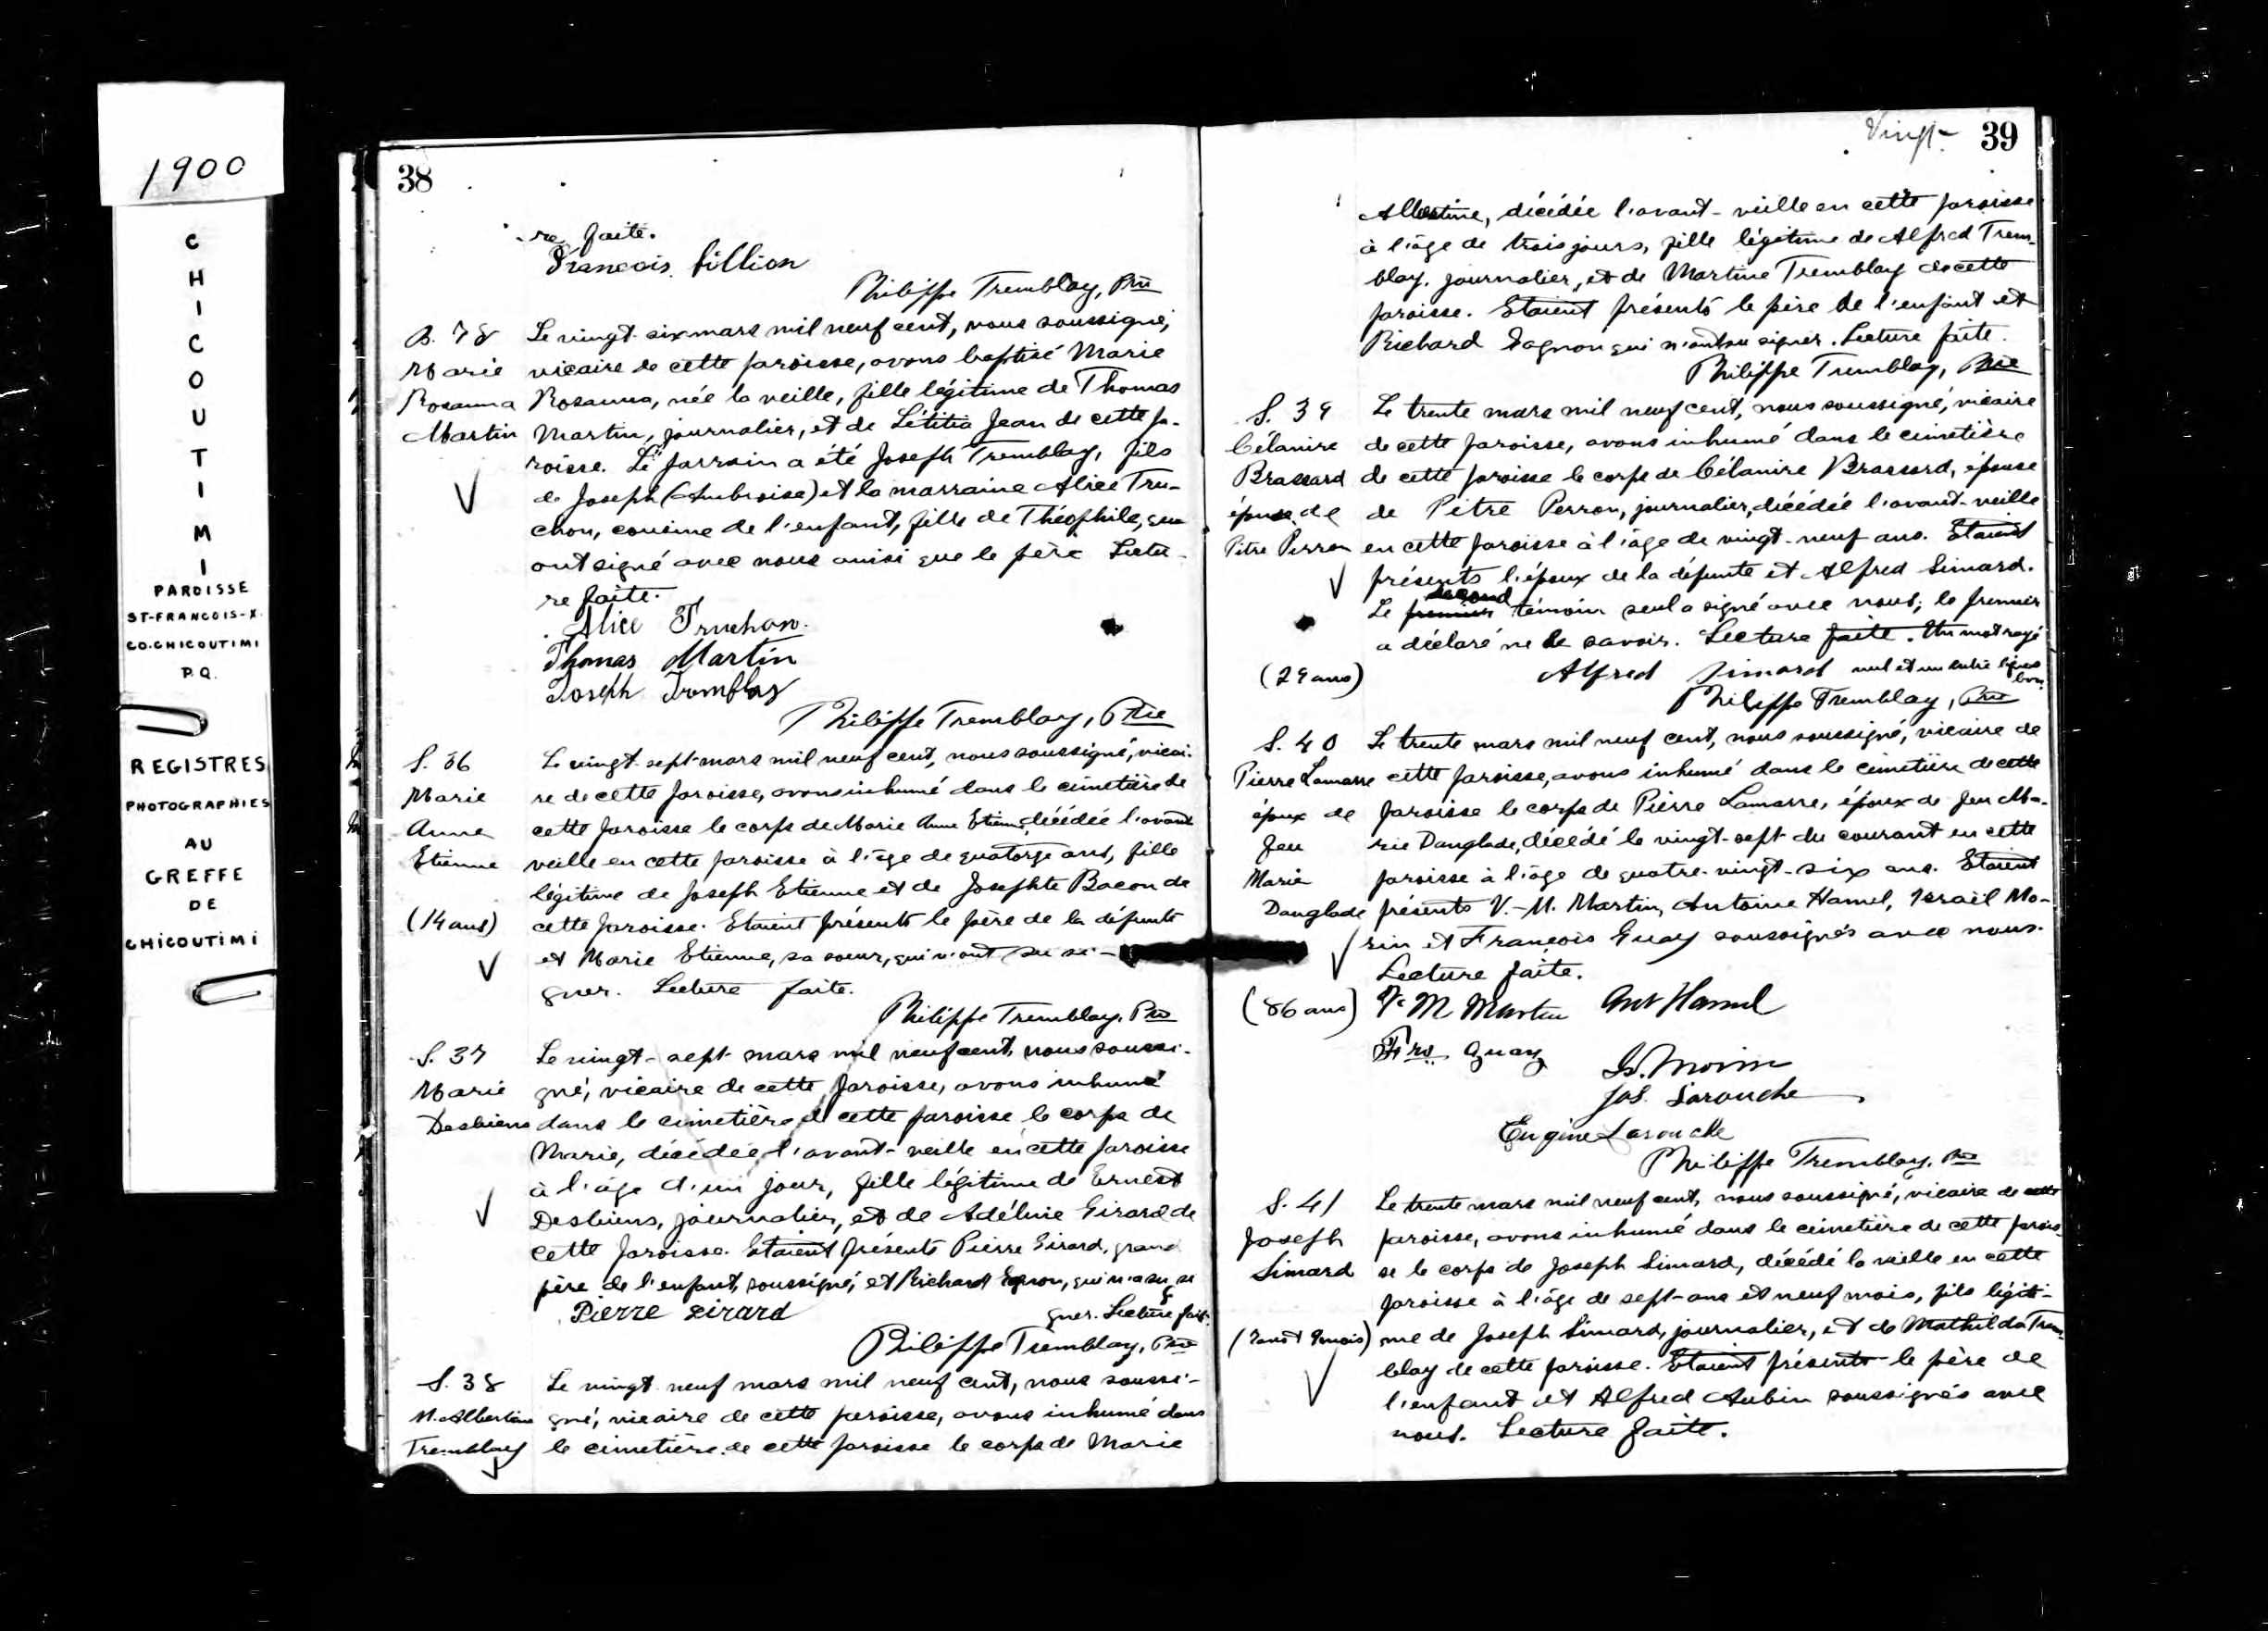 1900
C
H
I
C
O
U
T
I
M
I
PAROISSE
ST-FRANCOIS-X.
CO.CHICOUTIMI
P.Q.
REGISTRES
PHOTOGRAPHIES
AU
GREFFE
DE
CHICOUTIMI
38
re faite.
François Fillion
Philippe Tremblay, Ptre
B. 78
Marie
Rosanna
Martin
Le vingt-six mars mil neuf cent, nous soussigné,
vicaire de cette paroisse, avons baptisé Marie
Rosanna, née la veille, fille légitime de Thomas
Martin, journalier, et de Létitia Jean de cette pa-
roisse. Le parrain a été Joseph Tremblay, fils
de Joseph (Ambroise) et la marraine Alice Tru-
chon, cousine de l'enfant, fille de Théophile, qui
ont signé avec nous ainsi que le père. Lectu-
re faite.
Alice Truchon.
Thomas Martin
Joseph Tremblay
Philippe Tremblay, Ptre
S. 36
Marie
Anne
Etienne
(14 ans)
Le vingt-sept mars mil neuf cent, nous soussigné, vicai-
re de cette paroisse, avons inhumé dans le cimetière de
cette paroisse le corps de Marie Anne Etienne, décédée l'avant
veille en cette paroisse à l'âge de quatorze ans, fille
légitime de Joseph Etienne et de Josephte Bacon de
cette paroisse. Etaient présents le père de la défunte
et Marie Etienne, sa soeur, qui n'ont su si-
gner. Lecture faite.
Philippe Tremblay, Ptre
S. 37
Marie
Desbiens
Le vingt-sept mars mil neuf cent, nous soussi-
gné, vicaire de cette paroisse, avons inhumé
dans le cimetière de cette paroisse le corps de
Marie, décédée l'avant-veille en cette paroisse
à l'âge d'un jour, fille légitime de Ernest
Desbiens, journalier, et de Adéline Girard de
cette paroisse. Etaient présents Pierre Girard, grand
père de l'enfant, soussigné, et Richard Gagnon, qui n'a su si
gner. Lecture faite.
Pierre Girard
Philippe Tremblay, Ptre
S. 38
M. Albertine
Tremblay
Le vingt-neuf mars mil neuf cent, nous soussi-
gné, vicaire de cette paroisse, avons inhumé dans
le cimetière de cette paroisse le corps de Marie
Vingt- 39
Albertine, décédée l'avant-veille en cette paroisse
à l'âge de trois jours, fille légitime de Alfred Trem-
blay, journalier, et de Martine Tremblay de cette
paroisse. Etaient présents le père de l'enfant et
Richard Gagnon qui n'ont su signer. Lecture faite.
Philippe Tremblay, Ptre
S. 39
Célanire
Brassard
épouse de
Pitre Perron
(29 ans)
Le trente mars mil neuf cent, nous soussigné, vicaire
de cette paroisse, avons inhumé dans le cimetière
de cette paroisse le corps de Célanire Brassard, épouse
de Pitre Perron, journalier, décédée l'avant-veille
en cette paroisse à l'âge de vingt-neuf ans. Etaient
présents l'époux de la défunte et Alfred Simard.
second
Le premier témoin seul a signé avec nous; le premier
a déclaré ne le savoir. Lecture faite. Un mot rayé
nul et un entre lignes bon.
Alfred Simard
Philippe Tremblay, Ptre
S. 40
Pierre Lamarre
époux de
feu
Marie
Danglade
(86 ans)
Le trente mars mil neuf cent, nous soussigné, vicaire de
cette paroisse, avons inhumé dans le cimetière de cette
paroisse le corps de Pierre Lamarre, époux de feu Ma-
rie Danglade, décédé le vingt-sept du courant en cette
paroisse à l'âge de quatre-vingt-six ans. Etaient
présents V.-M. Martin, Antoine Hamel, Israël Mo-
rin et François Guay soussignés avec nous.
Lecture faite.
V M Martin Ant Hamel
Frs Guay
Is. Morin
Jos. Larouche
Eugène Larouche
Philippe Tremblay, Ptre
S. 41
Joseph
Simard
(7 ans et 9 mois)
Le trente mars mil neuf cent, nous soussigné, vicaire de cette
paroisse, avons inhumé dans le cimetière de cette parois-
se le corps de Joseph Simard, décédé la veille en cette
paroisse à l'âge de sept-ans et neuf mois, fils légiti-
me de Joseph Simard, journalier, et de Mathilda Trem-
blay de cette paroisse. Etaient présents le père de
l'enfant et Alfred Aubin soussignés avec
nous. Lecture faite.